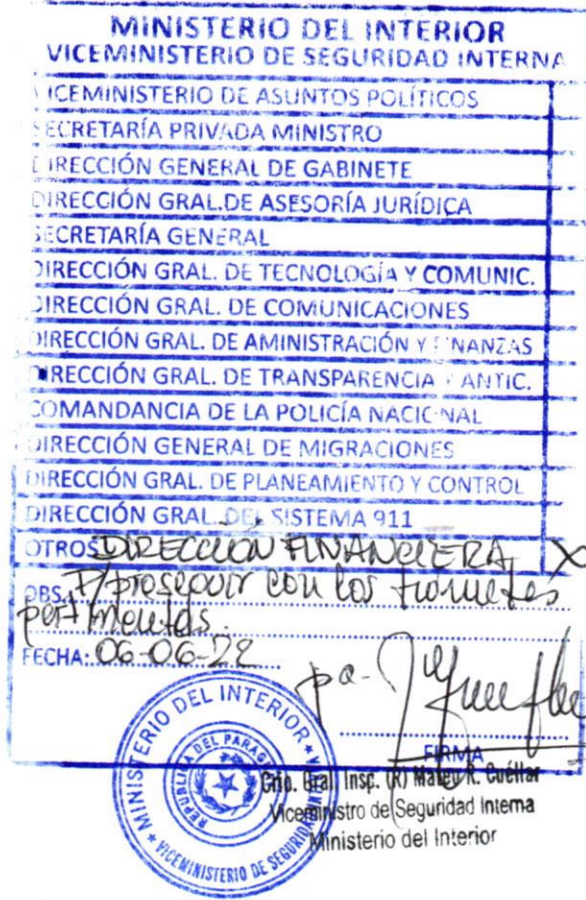 MINISTERIO DEL INTERIOR
VICEMINISTERIO DE SEGURIDAD INTERNA
VICEMINISTERIO DE ASUNTOS POLÍTICOS
SECRETARÍA PRIVADA MINISTRO
DIRECCIÓN GENERAL DE GABINETE
DIRECCIÓN GRAL.DE ASESORÍA JURÍDICA
SECRETARÍA GENERAL
DIRECCIÓN GRAL. DE TECNOLOGÍA Y COMUNIC.
DIRECCIÓN GRAL. DE COMUNICACIONES
DIRECCIÓN GRAL. DE AMINISTRACIÓN Y FINANZAS
DIRECCIÓN GRAL. DE TRANSPARENCIA Y ANTIC.
COMANDANCIA DE LA POLICÍA NACIONAL
DIRECCIÓN GENERAL DE MIGRACIONES
DIRECCIÓN GRAL. DE PLANEAMIENTO Y CONTROL
DIRECCIÓN GRAL. DEL SISTEMA 911
OTROS DIRECCIÓN FINANCIERA X
OBS.: P/proseguir con los trámites
pertinentes.
FECHA: 06-06-22
pa.
FIRMA
MINISTERIO DEL INTERIOR
REPUBLICA DEL PARAGUAY
VICEMINISTERIO DE SEGURIDAD INTERNA
Crio. Gral. Insp. (R) Mateu R. Cuéllar
Viceministro de Seguridad Interna
Ministerio del Interior